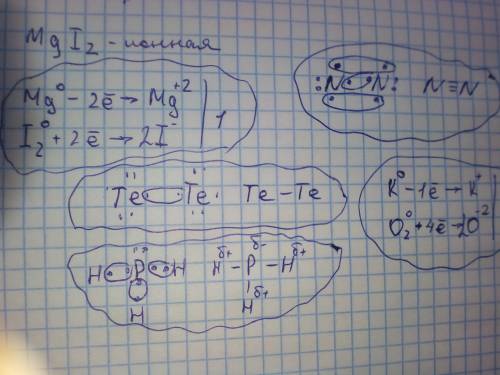 MgI₂ - ионная
Mg⁰ - 2ē → Mg⁺² | 1
I₂⁰ + 2ē → 2I⁻
:N N: N≡N
Te Te Te – Te
K⁰ - 1ē → K⁺
O₂⁰ + 4ē → 2O⁻²
H P H
H
H^δ+ – P^δ- – H^δ+
H^δ+